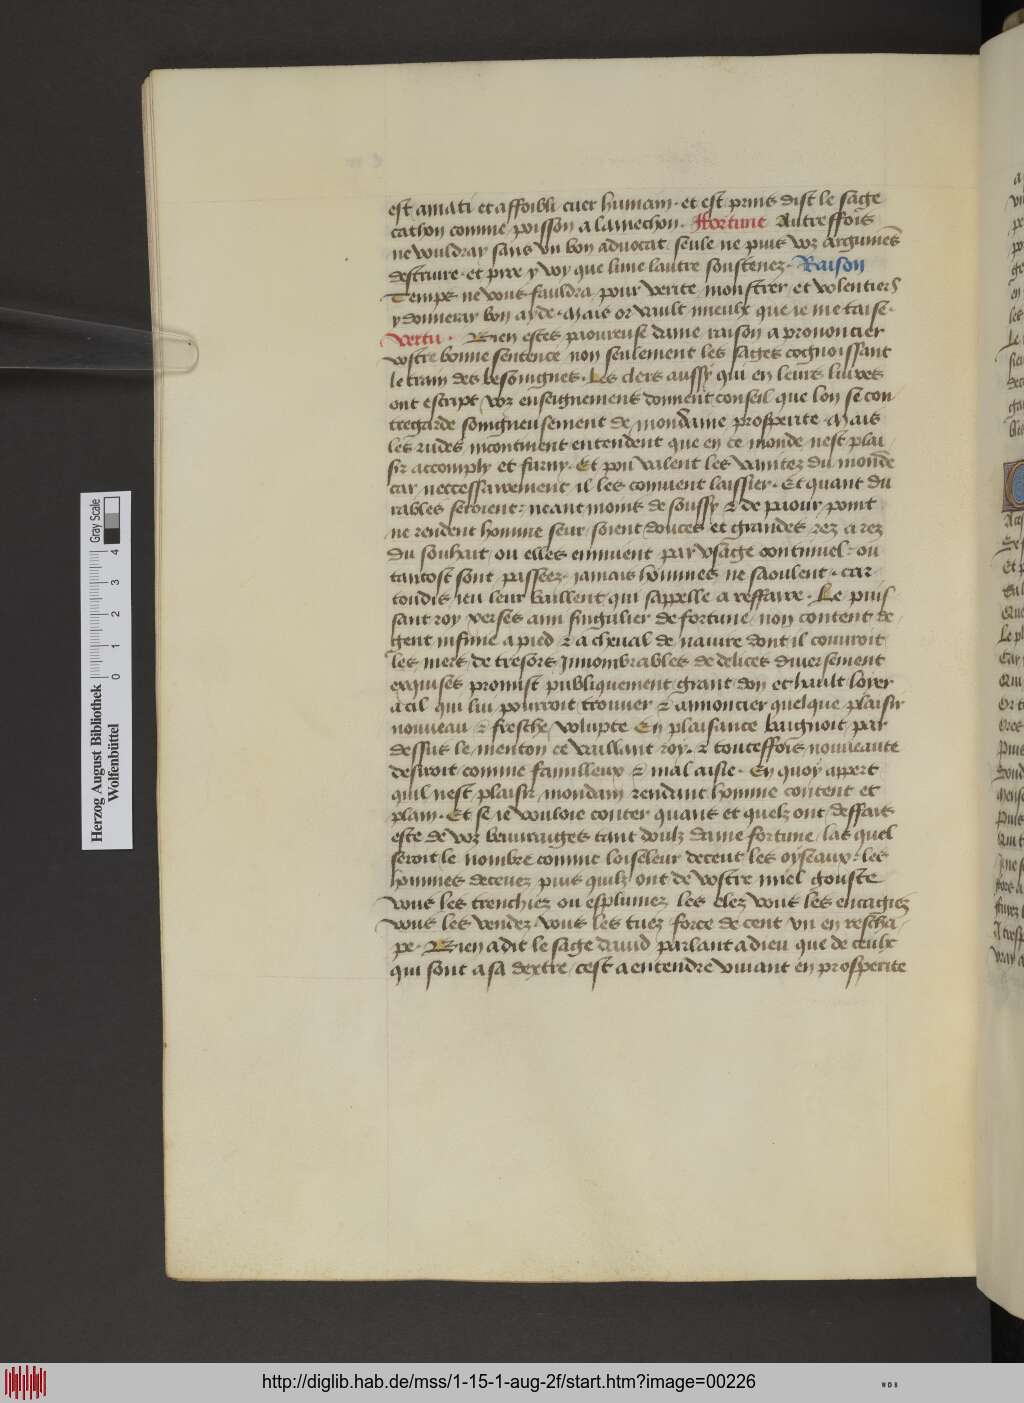 est amati et affoibli cuer humain · et est prins dist le sage
cathon comme poisson a lamechon · Ffortune Autreffois
ne vouldray sans un bon aduocat / seule ne puis voz argumēs
destruire · et pire y voy que lune lautre soustenez · Raison
Temps ne vous fauldra pour verite monstrer et volentiers
y donneray bon ayde · Mais or vault mieulx que ie me taise ·
Vertu · Bien estes paoureuse dame raison a prononcier
vostre bonne sentence non seulement les sages cognoissant
le train des besoingnes · Les clers aussy qui en leurs livres
ont escript / voz enseignemens donnent conseil que lon se con
tregarde soingneusement de mondaine prosperite · Mais
les rudes incontinent entendent que en ce monde nest plai
sir accomply et furny · Et pou valent les vanitez du monde
car neccessairement il les convient laissier · Et quant du
rables seroient : neantmoins de soussy & de paour point
ne rendent homme seur / soient douces et grandes rez a rez
du souhait / ou elles ennuient par vsage continuel : ou
tantost sont passeez · jamais hommes ne saoulent · car
tousdis ieu leur baillent qui sappelle a reffaire · Le puis
sant roy xerses ami singulier de fortune / non content de
gent infinie a pied & a cheval de navire dont il couuroit
les mers / de tresors Innombrables de delices diuersement
exquises promist publiquement grant don et hault loyer
a cil qui lui pourroit trouuer & anoncier quelque plaisir
nouueau & fresche volupte En plaisance baignoit par
dessus le menton ce vaillant roy · & touteffois nouueaute
desiroit comme familleux & mal aisie · En quoy appert
quil nest plaisir mondain rendant homme content et
plain · Et se ie vouloie conter quans et quelz ont deffais
este de voz beuuraiges tant doulz dame fortune / las quel
seroit le nombre comme loiseleur decent les oyseaux : les
hommes deceuez puis quilz ont de vostre miel gouste
vous les trenchiez ou esplumez les elez vous les encagiez
vous les vendez · vous les tuez force de cent un en rescha
pe · Bien a dit le sage dauid parlant a dieu que de ceulx
qui sont a sa dextre / cest a entendre viuant en prosperite
Herzog August Bibliothek
Wolfenbüttel
0 1 2 3 4
Gray Scale
http://diglib.hab.de/mss/1-15-1-aug-2f/start.htm?image=00226
WDB